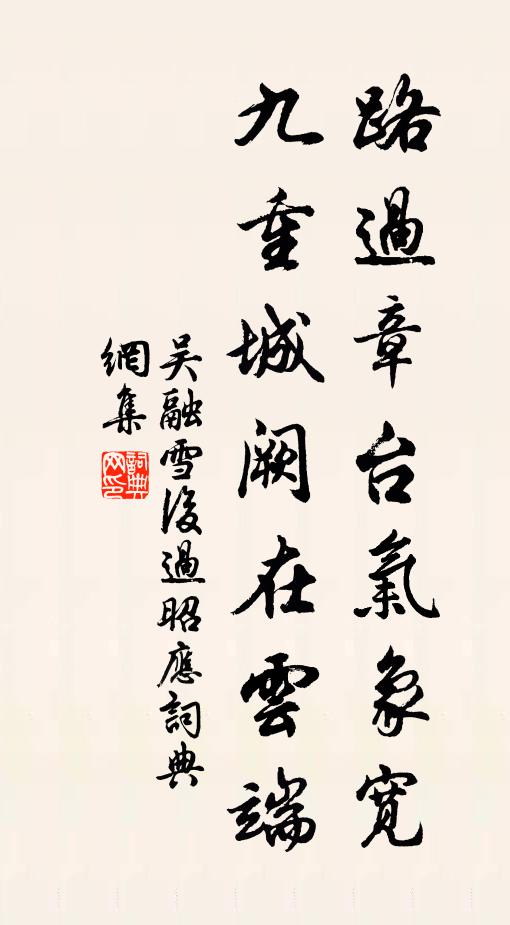 路過章台氣象寬
九重城闕在雲端
吴融雪後過昭應詞典
網集
詞典
网印